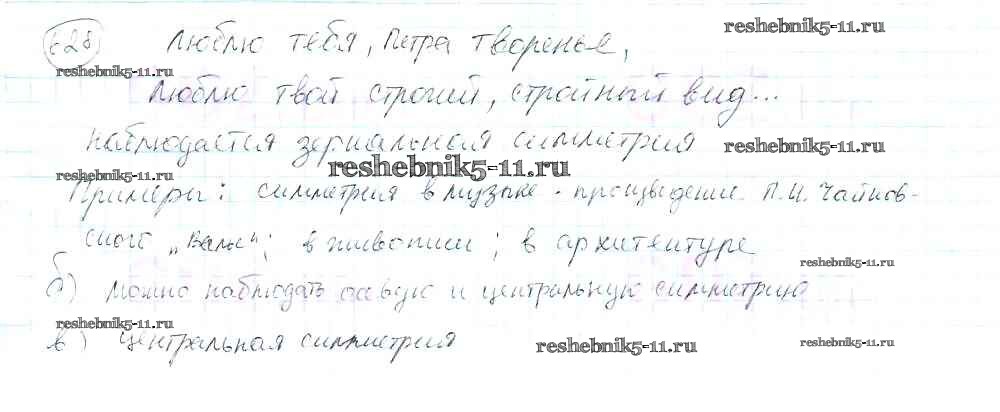 628) Люблю тебя, Петра творенье,
Люблю твой строгий, стройный вид...
наблюдается зеркальная симметрия
Примеры: симметрия в музыке - произведение П.И. Чайков-
ского „Вальс"; в живописи; в архитектуре
б) можно наблюдать осевую и центральную симметрию
в) центральная симметрия
reshebnik5-11.ru
reshebnik5-11.ru
reshebnik5-11.ru
reshebnik5-11.ru
reshebnik5-11.ru
reshebnik5-11.ru
reshebnik5-11.ru
reshebnik5-11.ru
reshebnik5-11.ru